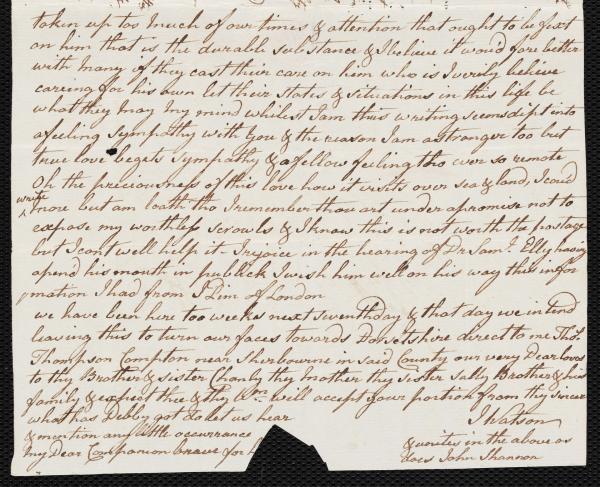 taken up too much of our times & attention that ought to be fixt
on him that is the durable substance & I believe it would fare better
with many if they cast their care on him who is I verily believe
careing for his own let their states & situations in this life be
what they may my mind whilest I am thus writing seems dipt into
a feeling Sympathy with You & the reason I am a stranger too but
true love begets Sympathy & a fellow feeling tho ever so remote
Oh the preciousness of this love how it visits over sea & land, I coud
write
more but am loath tho I remember thou art under a promise not to
expose my worthless scrowls & I know this is not worth the postage
but I cont well help it - I rejoice in the hearing of Dr Saml. Elly having
apend his mouth in publick I wish him well on his way this infor
mation I had from J Lim of London
we have been here too weeks next Seventhday & that day we intend
leaving this to turn our faces towards Dorsetshire direct to me Thos.
Thompson Compton near Sherbourne in said County our very Dear loves
to thy Brother & sister Chanly thy Mother thy sister Sally Brother & his
family & expect thee & thy Wm. will accept your portion from thy sincere
what has Debby got do let us hear
I Watson
& mention any little occurrance
& unites in the above as
my Dear Companion brave for
does John Shannon